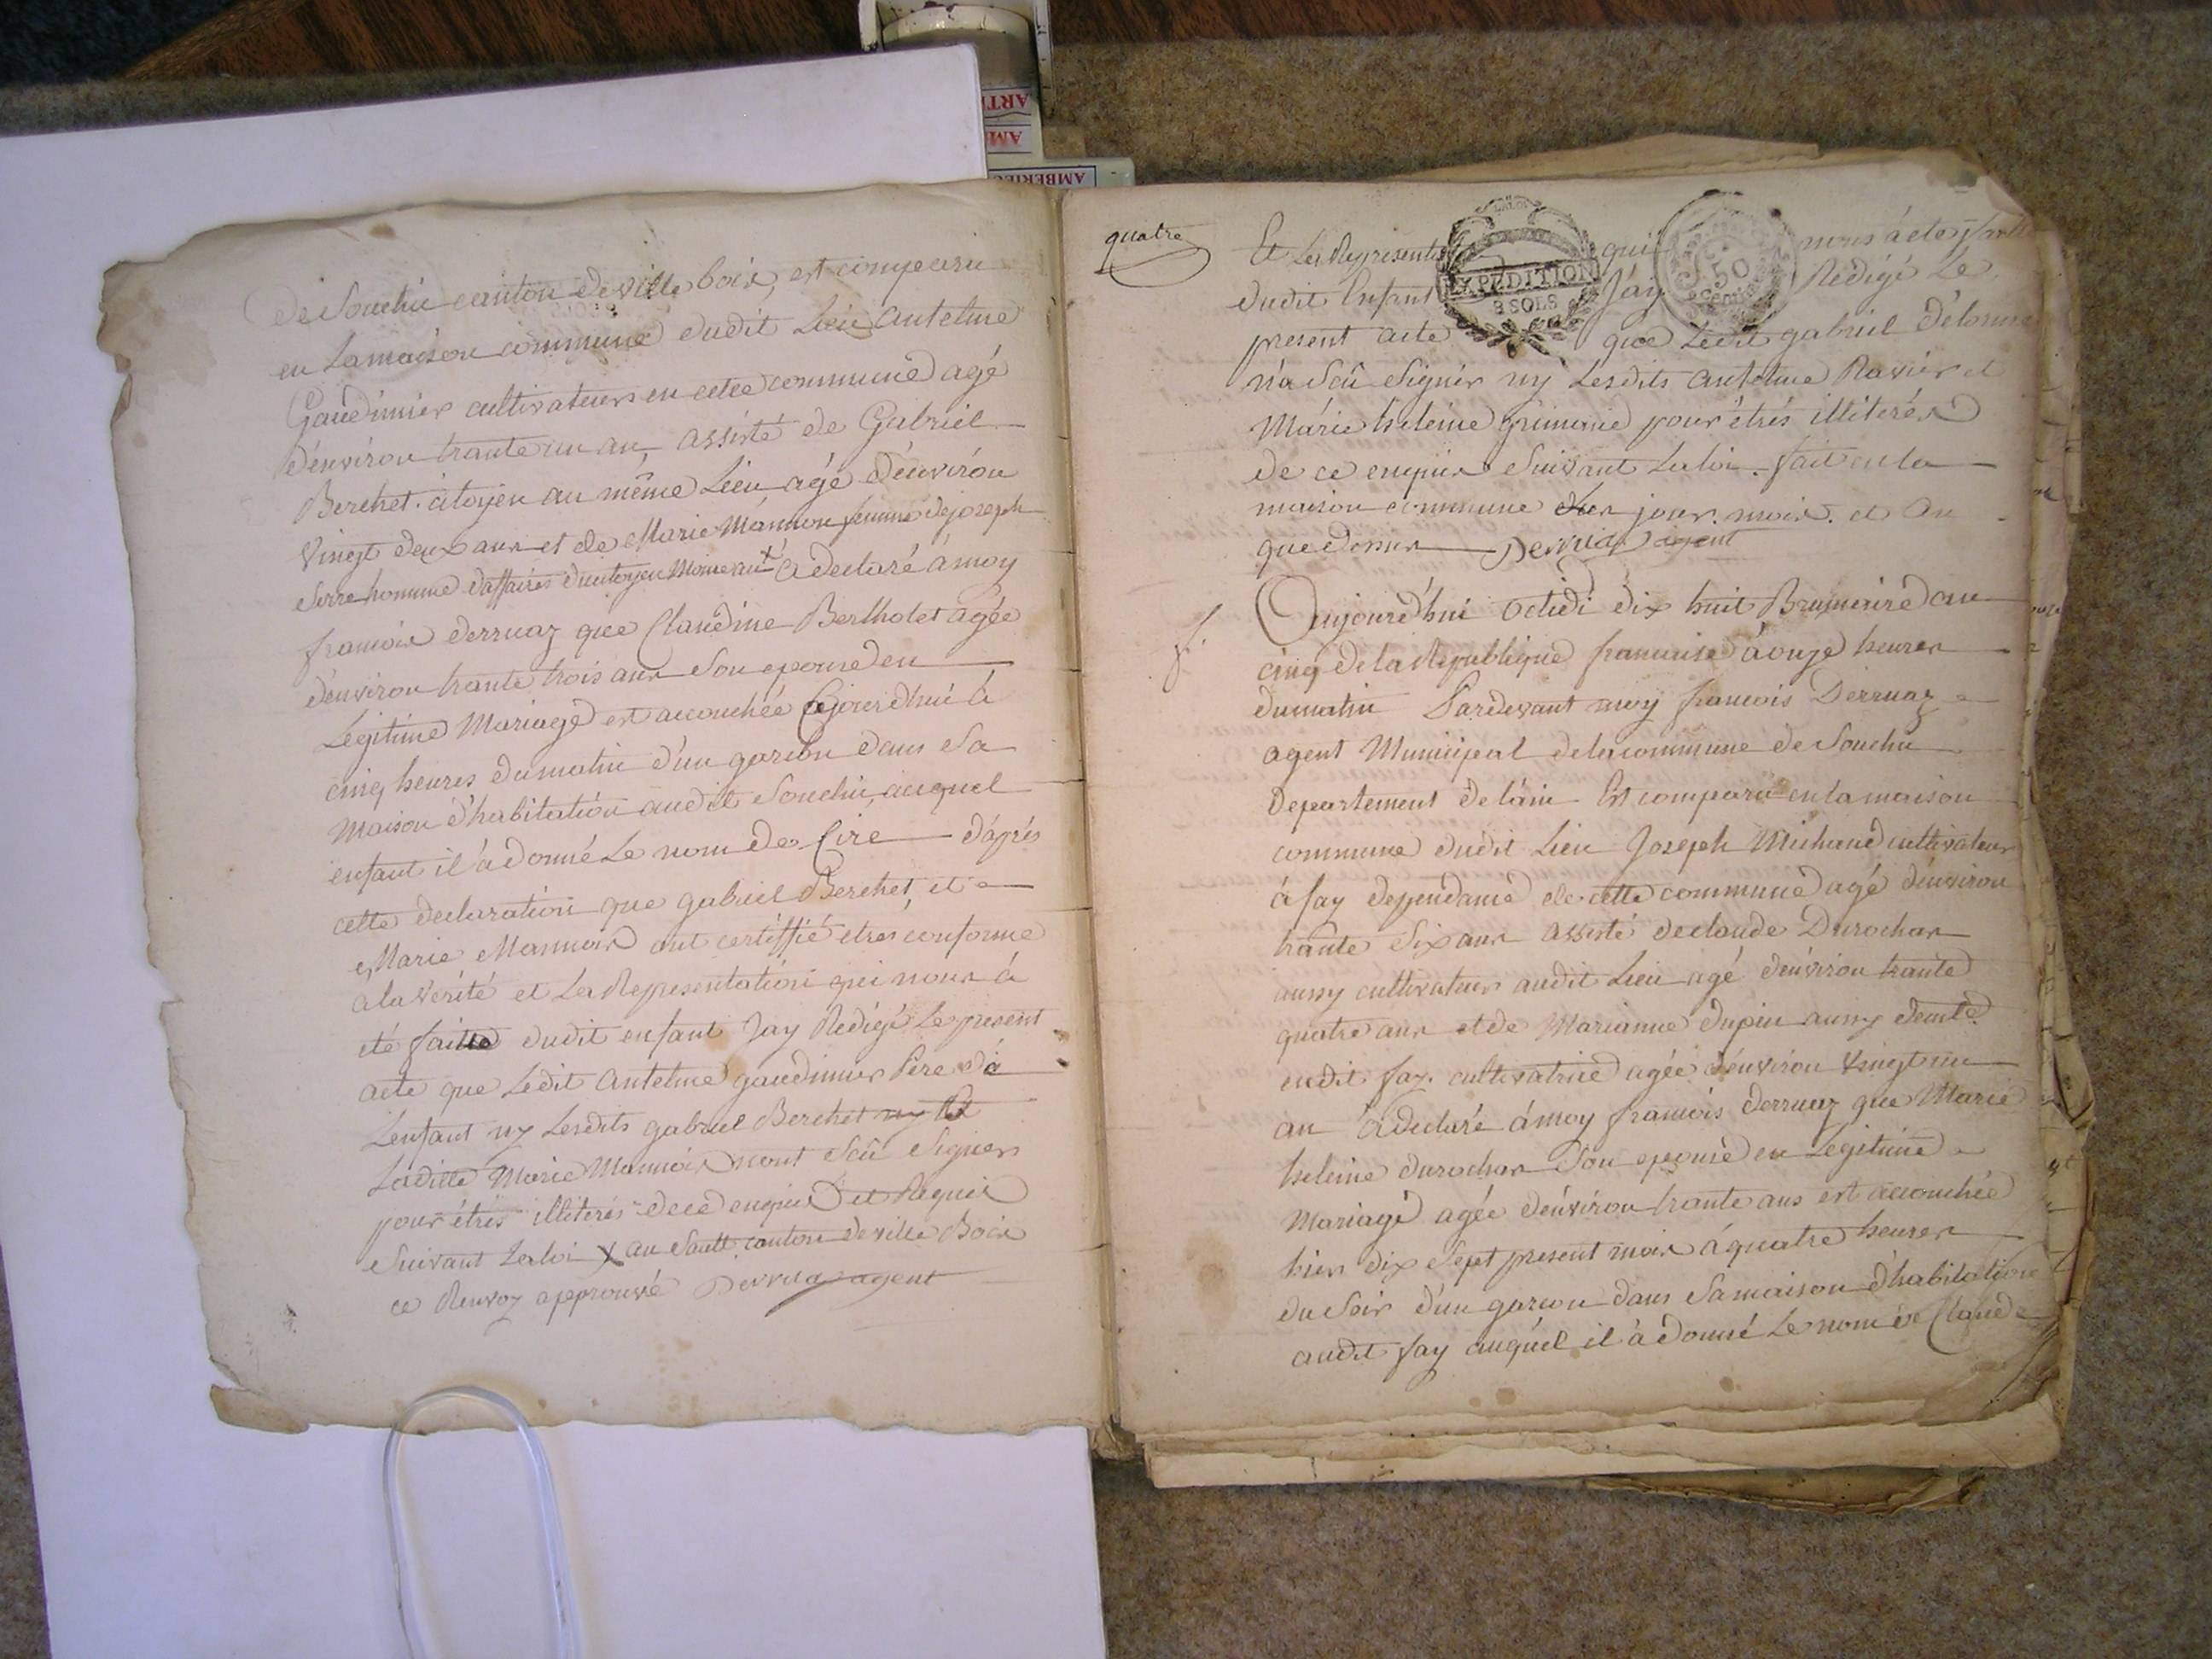 de Souclin canton de ville bois, est comparu
en la maison commune dudit Lieu Antelme
Gaudimier cultivateur en cette commune agé
d'environ trante un an, assisté de Gabriel
Berchet citoyen au même Lieu agé d'environ
vingt deux ans et de Marie Mannon femme de joseph
Serre homme d'affaires du citoyen X a declaré à moy
francois Derruaz que Claudine Bertholet agée
d'environ trante trois ans Son epouse en
Légitime Mariage est accouchée Cejourdhui à
cinq heures du matin d'un garcon dans Sa
Maison d'habitation audit Souclin, auquel
enfant il à donné Le nom de Cire d'aprés
cette declaration que gabriel Berchet, et
Marie Mannon ont certiffié etre conforme
à la vérité et La Representation qui nous à
été faitte dudit enfant Jay Redigé Le present
acte que Ledit Antelme gaudimier Pere dé
Lenfant ny Lesdits gabriel Berchet ny
Laditte Marie Mannon nont Sçû Signer
pour étrés illiterés de ce enquis et Requis
Suivant La loi X au Sault canton de ville Bois
ce Renvoy approuvé Derruaz agent
quatre
Et La Représent qui nous à eté faitte
dudit Enfant Jáy Redigé Le
present acte que Ledit gabriel Délorme
n'a Sçû Signér ny Lesdits Antelme Ravier et
Márie heleine pour étrés illiterés
de ce enquis Suivant La loi. fait en la
maison commune Les jour. mois. et an
que dessus Derruaz agent
Aujourd'hui Octidi dix huit Brumaire an
cinq de la Republique francaise à onze heures
du matin Pardevant moy francois Derruaz
agent Municipal de la commune de Souclin
departement de láin Est comparu en la maison
commune dudit Lieu Joseph Michaud cultivateur
à fay dependance de cette commune agé d'environ
trante Six ans assisté de claude Durochar
aussy cultivateur audit Lieu agé d'environ trante
quatre ans et de Marianne Dupin aussy
audit fay. cultivatrice agée d'environ Vingt un
an à declaré à moy francois derruaz que Marie
heleine durochar Son epouse en Legitime
Mariage agée d'environ trante ans est accouchée
hier dix Sept present mois à quatre heures
du Soir d'un garcon dans Sa maison d'habitation
audit fay auquél il à donné Le nom de Claude
EXPEDITION
8 SOLS
50
CENTIMES
AMBERIEU